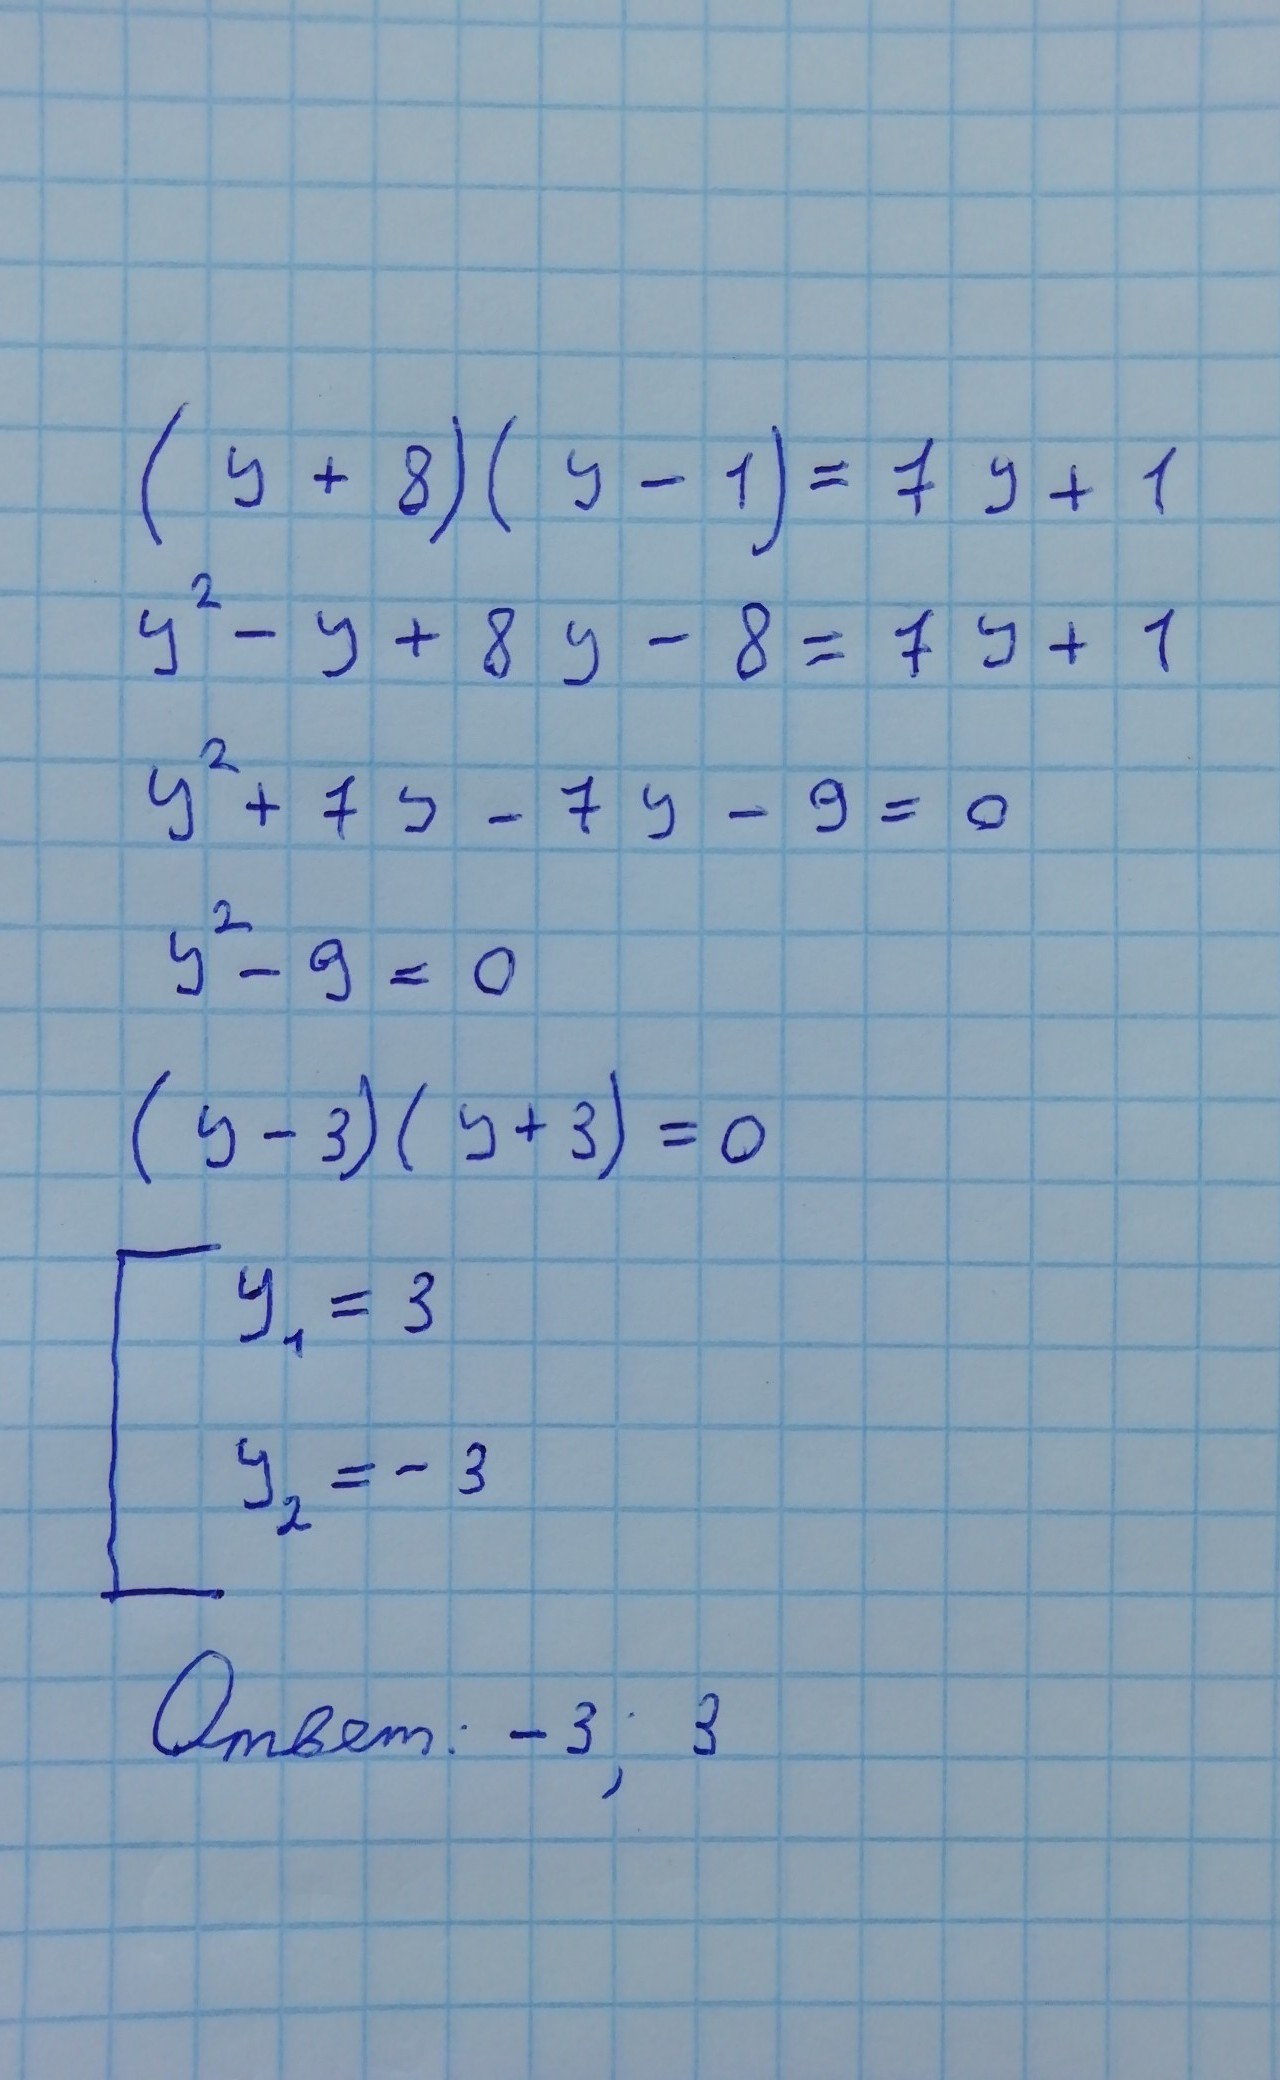 (y + 8)(y - 1) = 7y + 1
y² - y + 8y - 8 = 7y + 1
y² + 7y - 7y - 9 = 0
y² - 9 = 0
(y - 3)(y + 3) = 0
y₁ = 3
y₂ = - 3
Ответ: -3; 3